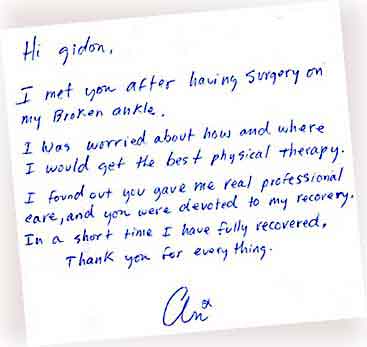 Hi gidon,
I met you after having surgery on
my Broken ankle.
I was worried about how and where
I would get the best physical therapy.
I found out you gave me real professional
care, and you were devoted to my recovery.
In a short time I have fully recovered,
Thank you for everything.